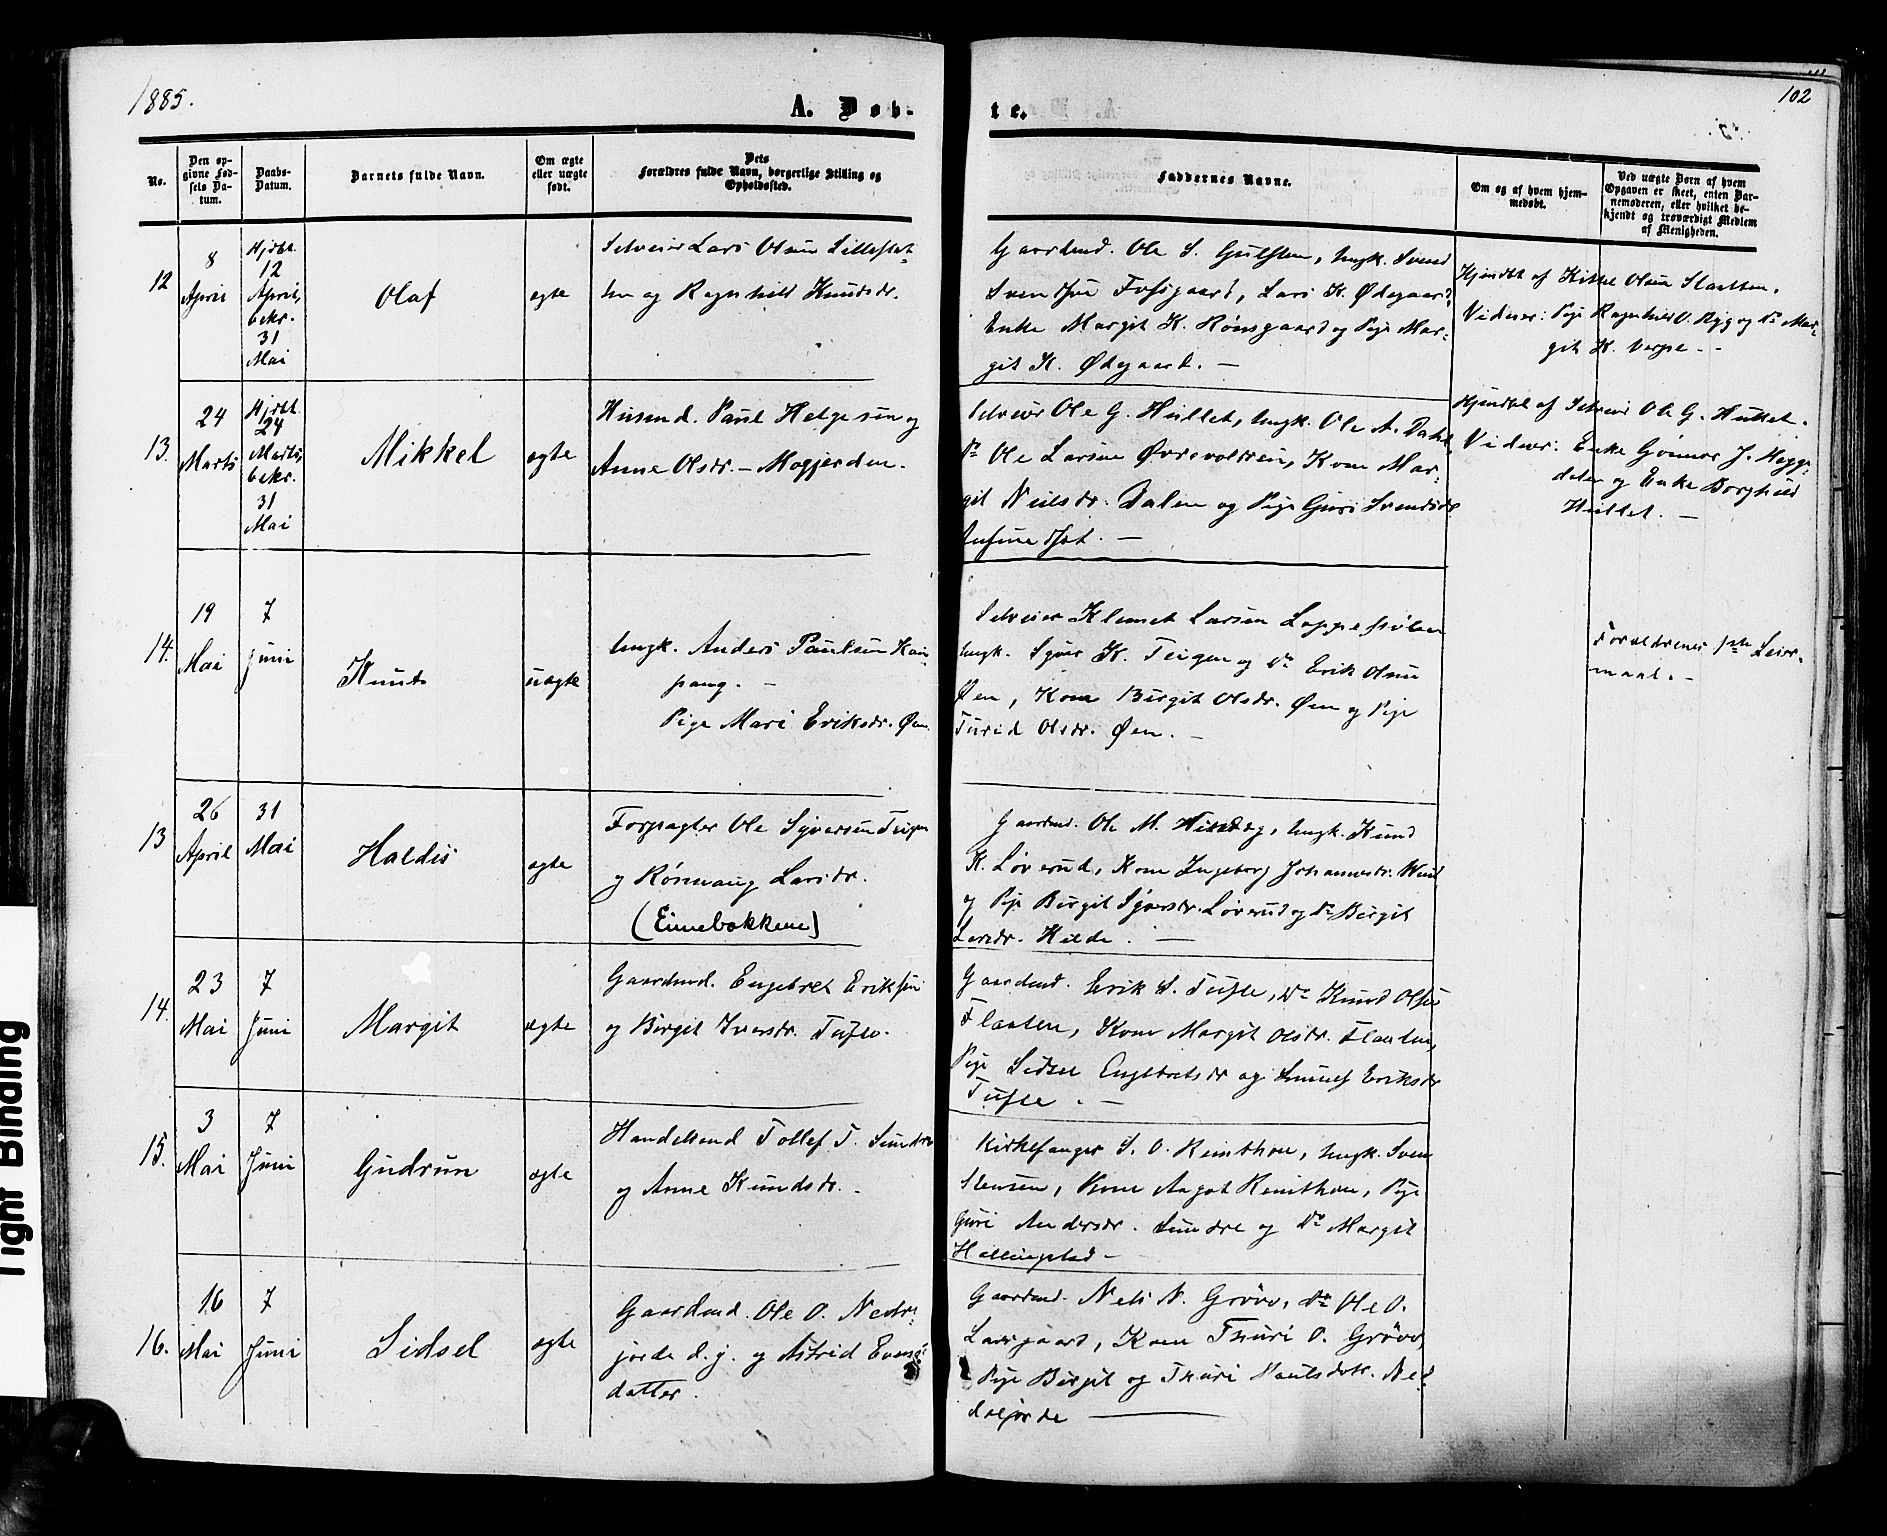 1885.
A. Døb-
te.
102
No.
Den op-
givne Fød-
sels Da-
tum.
Daabs-
Datum.
Barnets fulde Navn.
Om ægte
eller uægte
født.
Dets
Forældres fulde Navn, borgerlige Stilling og
Opholdssted.
Faddernes Navne.
Om og af hvem hjem-
medøbt.
Ved uægte Børn af hvem
Opgaven er skeet, enten Bar-
nemoderen, eller hvilket be-
kjendt og troværdigt Medlem
af Menigheden.
12
8
April
Hjdbt.
12
April,
bekr.
31
Mai
Olaf
ægte
Selveier Lars Olsen
og Ragnhild Knudsdr.
Gaardmd. Ole S. Gulsten, Ungk. Svend
Svendsen Fossgaard, Lars K. Ødegaard,
Enke Margit K. Rønsgaard og Pige Mar-
git K. Ødegaard. —
Hjmdbt af Kittel Olsen Slaatten.
Vidner: Pige Ragnhild O. Ryg og Do Mar-
git K. Verpe. —
13.
24
Marts
Hjdbt.
24
Marts,
bekr.
31
Mai
Mikkel
ægte
Husmd. Paul Helgesen og
Anne Olsdr. — Mogjerden.
Selveier Ole G. Hullet, Ungk. Ole A. Dahl,
Do Ole Larsen Øvrevoldsen, Kone Mar-
git Neilsdr. Dalen og Pige Guri Svendsdr
Hjmdbt af Selveier Ole G. Hullet.
Vidner: Enke Gønnor J. Hægg-
og Enke Borghild
Hullet. —
14.
19
Mai
7
Juni
Knut
uægte
Ungk. Anders Paulsen Kam-
pang. —
Pige Mari Eriksdr. Øen.
Selveier Klemet Larsen
Ungk. Syver K. Teigen og Do Erik Olsen
Øen, Kone Birgit Olsdr. Øen og Pige
Turid Olsdr. Øen. —
Forældrenes 1ste Leier-
maal. —
13
26
April
31
Mai
Haldis
ægte
Forpagter Ole Syversen Teigen
og Rønnaug Larsdr.
(Einnebakkene)
Gaardmd. Ole M. Ungk. Knud
K. Løvrud, Kone Ingeborg Johannesdr.
og Pige Birgit Syversdr. Løvrud og Do Birgit
Larsdr. Hilde. —
14.
23
Mai
7
Juni
Margit
ægte
Gaardmd. Engebret Eriksen
og Birgit Iversdr. Tufte.
Gaardmd. Erik S. Tufte, Do Knud Olsen
Flaaten, Kone Margit Olsdr. Flaaten,
Pige Sidsel Engebretsdr og Eriksdr
Tufte. —
15.
3
Mai
7
Juni
Gudrun
ægte
Handelsmd Tollef T. Sundre
og Anne Knudsdr. —
Kirkesanger S. O. Reinthon, Ungk. Sven
Stensen, Kone Aagot Reinthon, Pige
Guri Andersdr. Sundre og Do Margit
Hallingstad —
16.
16
Mai
7
Juni
Sidsel
ægte
Gaardmd. Ole O. Nedre-
jorde d. y. og Astrid Evens-
datter.
Gaardmd. Nels N. Grøvo, Do Ole O.
Larsgaard, Kone Thuri O. Grøvo,
Pige Birgit og Thuri Ned-
Tight Binding